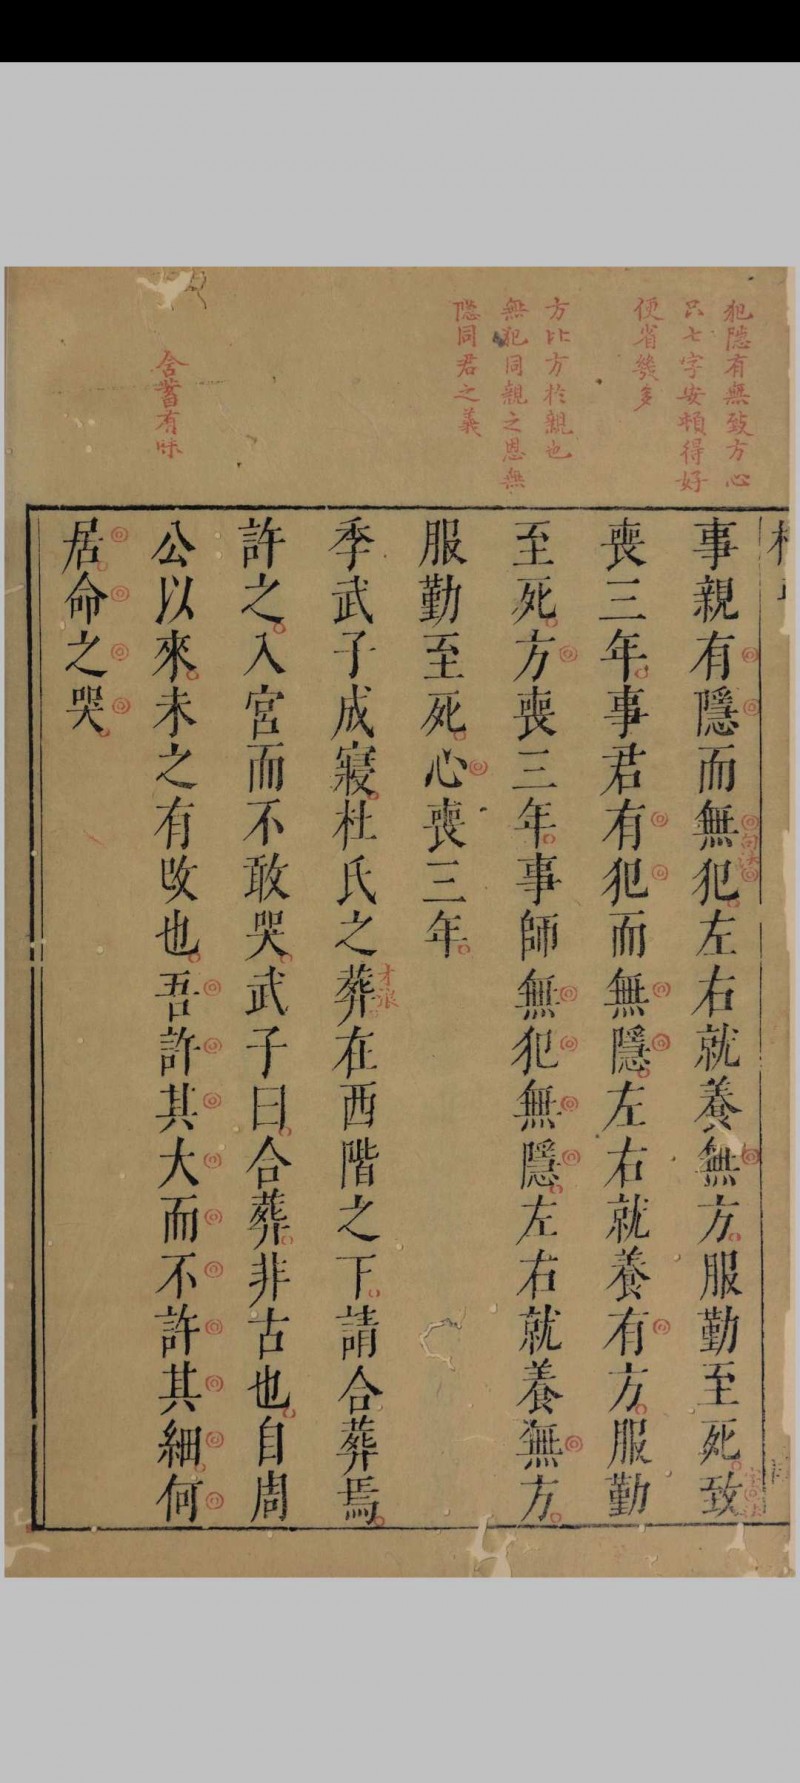 犯隱有無致方心
只七字安頓得好
便省幾多
方比方於親也
無犯同親之恩無
隱同君之義
含蓄有味
事親有隱而無犯左右就養無方服勤至死致
句法
字法
喪三年事君有犯而無隱左右就養有方服勤
至死方喪三年事師無犯無隱左右就養無方
服勤至死心喪三年
季武子成寢杜氏之葬在西階之下請合葬焉
許之入宮而不敢哭武子曰合葬非古也自周
公以來未之有改也吾許其大而不許其細何
居命之哭